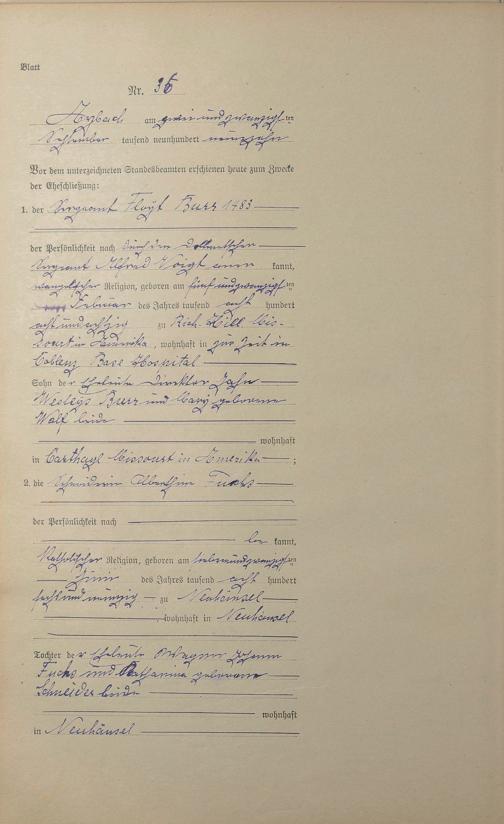 Blatt
Nr. 36
Arzbach am zwei und zwanzigsten
September tausend neunhundert neunzehn
Vor dem unterzeichneten Standesbeamten erschienen heute zum Zwecke
der Eheschließung:
1. der Sergeant Floyt Burr 1483
der Persönlichkeit nach durch den Dolmetscher
Sergeant Alfred Voigt aner kannt,
evangelischer Religion, geboren am fünf und zwanzigsten
Februar des Jahres tausend acht hundert
acht und achtzig zu Rich Hill Mis-
souri in Amerika, wohnhaft in zur Zeit in
Coblenz Base Hospital
Sohn der Eheleute Direktor John
Weslejs Burr und Mary geborene
Wolf beide
wohnhaft
in Carthagl Missouri in Amerika;
2. die Schneiderin Albertine Fuchs
der Persönlichkeit nach
be kannt,
Katholischer Religion, geboren am siebenundzwanzigsten
Juni des Jahres tausend acht hundert
sechs und neunzig zu Neuhäusel
, wohnhaft in Neuhäusel
Tochter der Eheleute Wagner Johann
Fuchs und Katharina geborene
Schneider beide
wohnhaft
in Neuhäusel